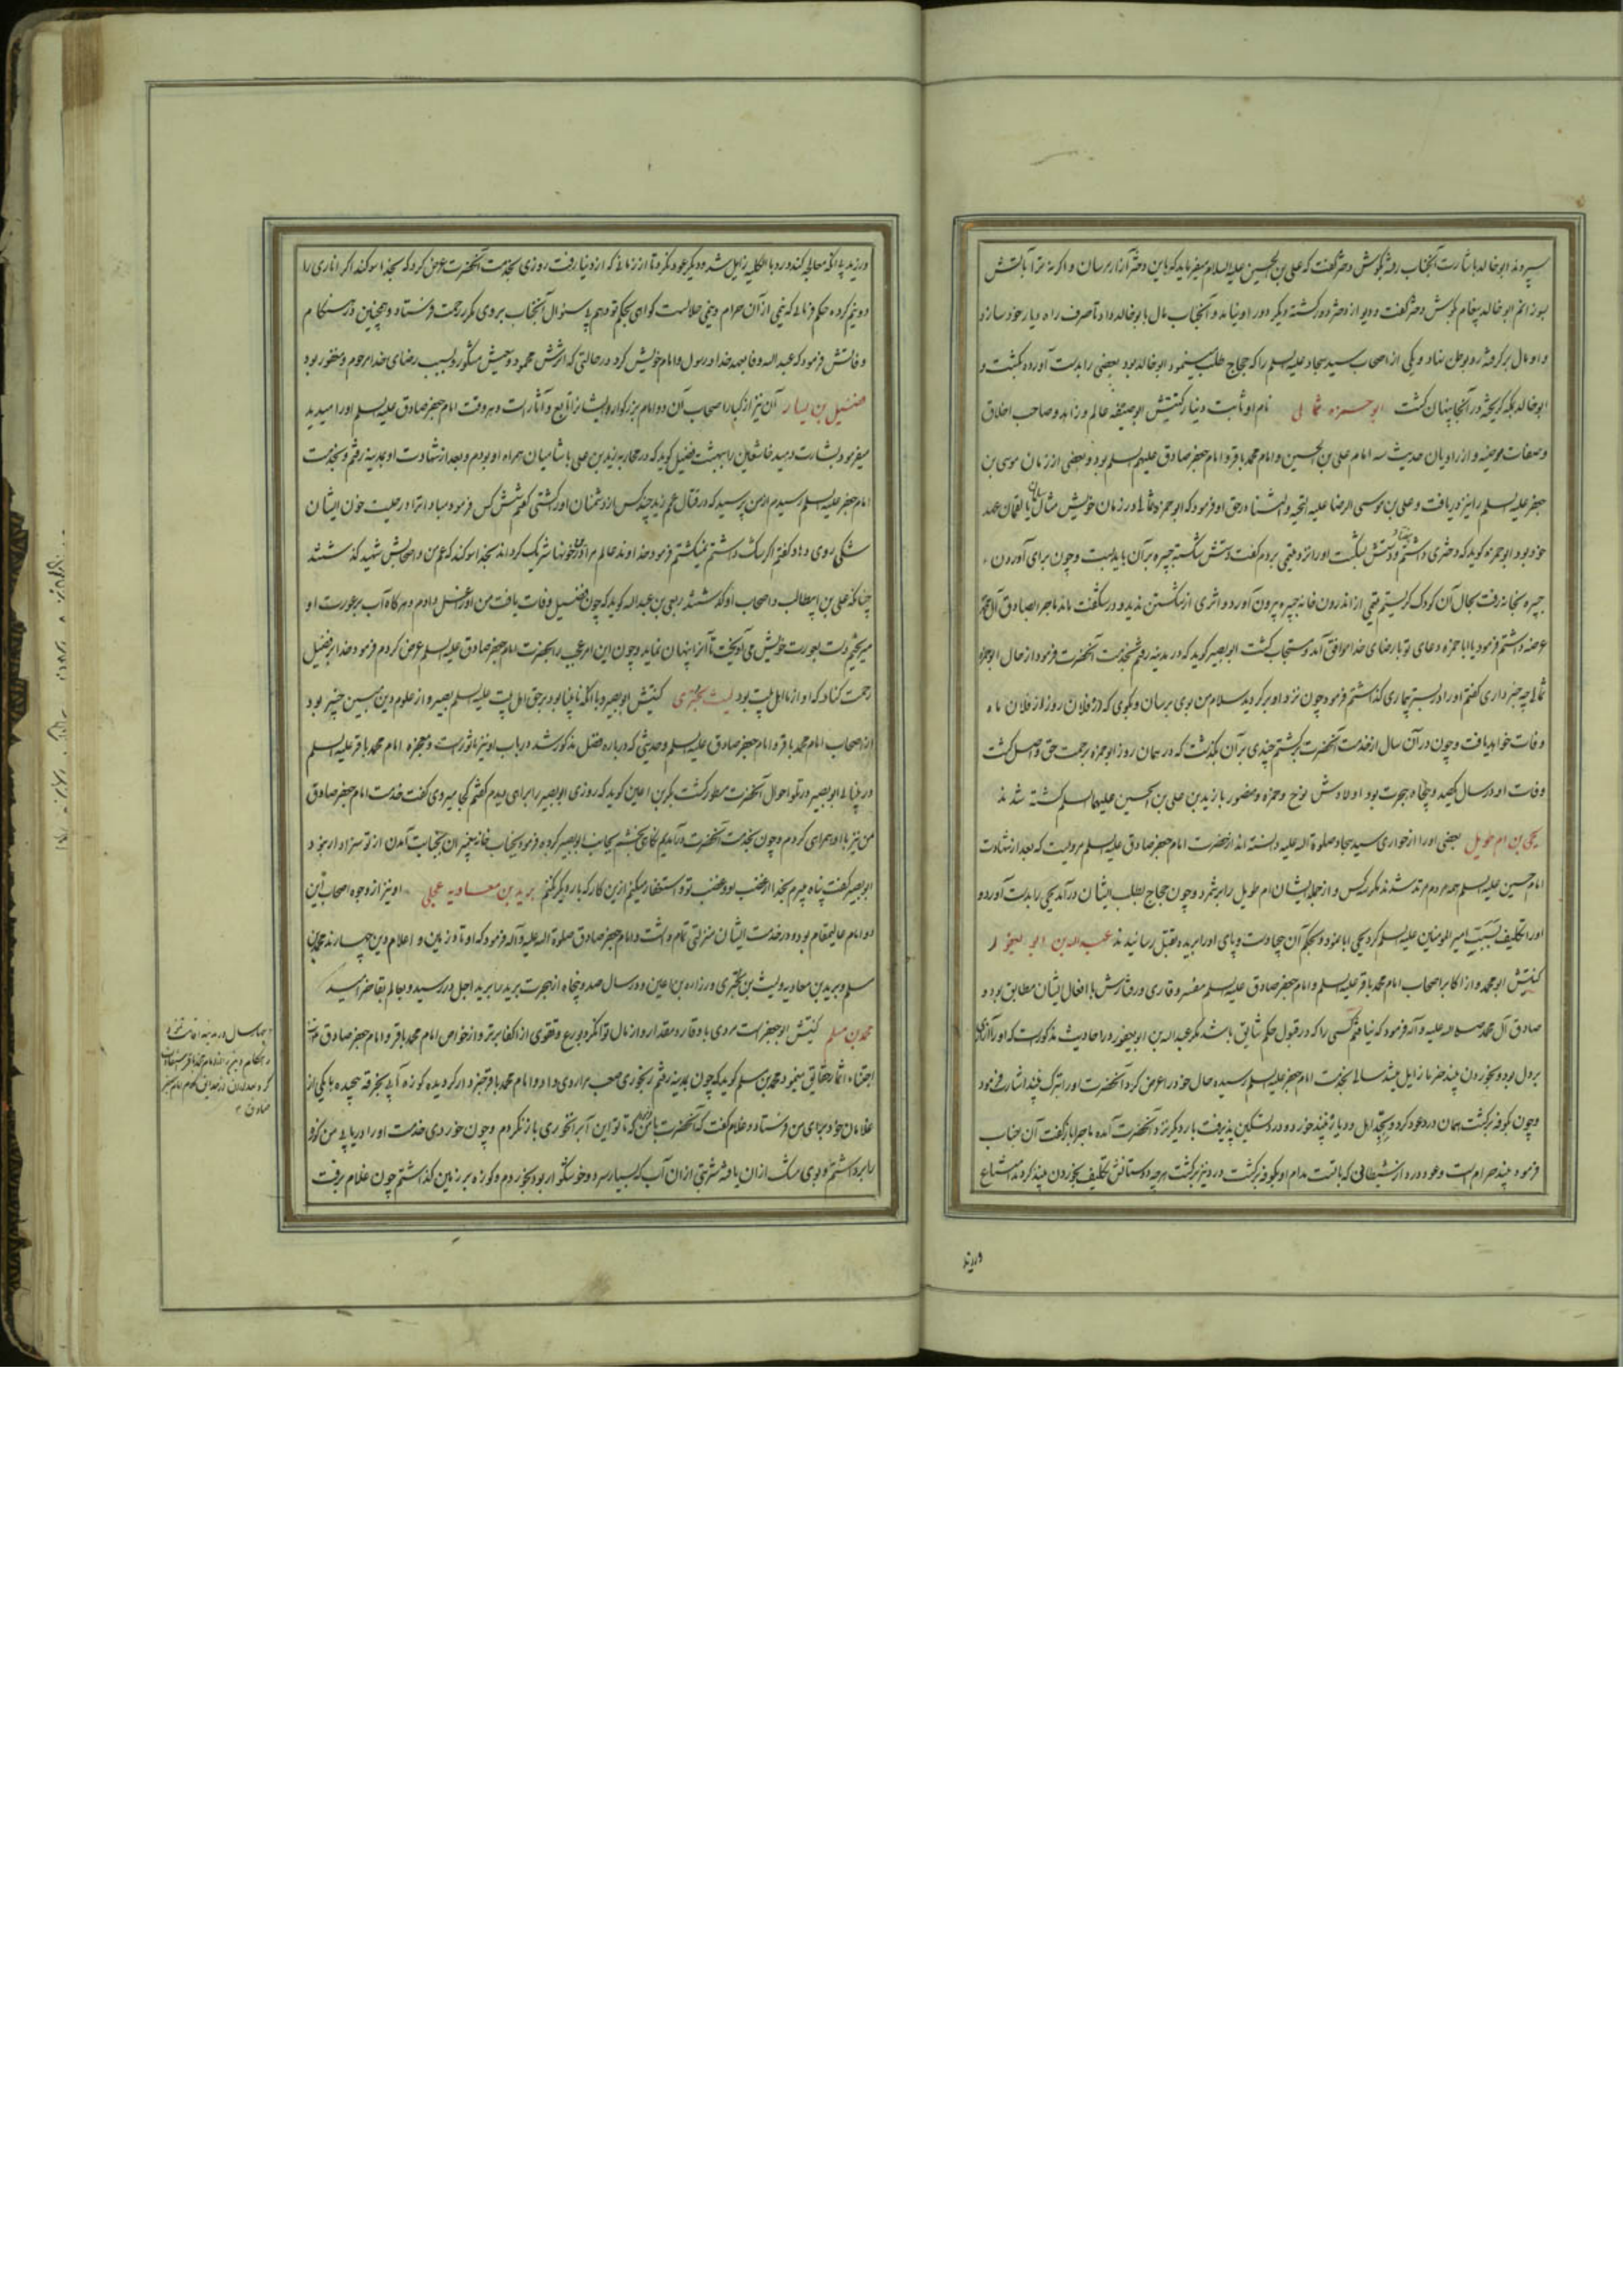 سپردند ابوخالد باشارت آنجناب رفته بگوش دختر گفت که علی بن الحسین علیه السلام میفرماید که باین دختر آزار مرسان و اگر نه ترا بآتش
بسوزانم ابوخالد پیغام بگوش دختر گفت و دیو از دختر دور گشته دیگر دور او نیامد و آنجناب مال بابوخالد داد تا صرف راه دیار خود سازد
و او مال برگرفته رو بوطن نهاد و یکی از اصحاب سید سجاد علیه السلم را که حجاج طلب مینمود ابوخالد بود بعضی را بدست آورده بکشت و
ابوخالد بمکه گریخته در آنجا پنهان گشت ابو حمزه ثمالی نام او ثابت دینار کنیتش ابو صفیه عالم و زاهد و صاحب اخلاق
و صفات مرضیه و از راویان حدیث سه امام علی بن الحسین و امام محمد باقر و امام جعفر صادق علیهم السلم بود و بعضی از زمان موسی بن
جعفر علیه السلم را نیز دریافت و علی بن موسی الرضا علیه التحیه و الثناء در حق او فرمود که ابو حمزه ثمالی در زمان خویش مثال سلمان یا لقمان عهد
خود بود ابو حمزه گوید که دختری داشتم بیفتاد و دستش بشکست او را نزد مجبر بردم گفت دستش شکسته جبیره بر آن باید بست و چون برای آوردن
جبیره بخانه رفت بحال آن کودک گریستم مجبر از اندرون خانه جبیره بیرون آورد و اثری از شکستن ندید و در شگفت ماند ماجرا بصادق آل محمد
عرضه داشتم فرمود یا ابا حمزه دعای تو با رضای خدا موافق آمد و مستجاب گشت ابو بصیر گوید که در مدینه رفتم بخدمت آنحضرت فرمود از حال ابو حمزه
ثمالی چه خبر داری گفتم او را در بستر بیماری گذاشتم فرمود چون نزد او برگردید سلام من بوی برسان و بگوی که در فلان روز از فلان ماه
وفات خواهد یافت و چون در آن سال از خدمت آنحضرت برگشتم چندی بر آن بگذشت که در همان روز ابو حمزه برحمت حق واصل گشت
وفات او در سال یکصد و پنجاه هجرت بود اولادش نوح و حمزه و منصور با زید بن علی بن الحسین علیهما السلم کشته شدند
یحیی بن ام طویل بعضی او را از حواری سید سجاد صلوة اله علیه دانسته اند از حضرت امام جعفر صادق علیه السلم مرویست که بعد از شهادت
امام حسین علیه السلم همه مردم مرتد شدند مگر سه کس و از جمله ایشان ام طویل را برشمرد و چون حجاج بطلب ایشان درآمد یحیی را بدست آورد و
او را تکلیف بسبّ امیر المومنین علیه السلم کرد یحیی ابا نمود و بحکم آن جبار دست و پای او را برید و بقتل رسانیدند عبد الله بن ابو یعفور
کنیتش ابو محمد و از اکابر اصحاب امام محمد باقر علیه السلم و امام جعفر صادق علیه السلم مفسر و قاری و رفتارش با افعال ایشان مطابق بود و
صادق آل محمد صلی اله علیه و آله فرمود که نیافتم کسی را که در قبول حکم شایق باشد مگر عبد الله بن ابو یعفور در احادیث مذکورست که او را آزاری
بر دل بود و بخوردن نبیذ
و چون بکوفه برگشت همان درد عود کرد
فرمود نبیذ حرام است و عود درد از شیطانی
وریند
ورزید یا آنکه معالجه کند درد بالکلیه زایل شد و دیگر عود نکرد تا از زمانی که از دنیا رفت روزی بخدمت آنحضرت عرض کرد که بخدا سوگند اگر اناری را
دو نیم کرده حکم فرمائی که نیمی از آن حرام و نیمی حلالست گواهی بحکم تو دهم بی سئوال آنجناب بر وی مکرر رحمت فرستاد و همچنین در هنگام
وفاتش فرمود که عبد اله وفا بعهد خدا و رسول و امام خویش کرد در حالتی که اثرش محمود و سعیش مشکور و بسبب رضای خدا مرحوم و مغفور بود
فضیل بن یسار آن نیز از کبار اصحاب آن دو امام بزرگوار و ایشانرا تابع و آثار است و هر وقت امام جعفر صادق علیه السلم او را میدید
میفرمود بشارت دهید خاشعان را ببهشت فضیل گوید که در محاربه زید بن علی با شامیان همراه او بودم و بعد از شهادت او بمدینه رفتم و بخدمت
امام جعفر علیه السلم رسیدم از من پرسید که در قتال عمم زید چند کس از دشمنان او را کشتی گفتم شش کس فرمود مبادا ترا در حلیت خون ایشان
شکی روی دهد گفتم اگر شک داشتم نمیکشتم فرمود خداوند عالم مرا در آن خونها شریک گرداند بخدا سوگند که عم من و اصحابش شهید گذشتند
چنانکه علی بن ابیطالب و اصحاب او گذشتند ربعی بن عبد اله گوید که چون فضیل وفات یافت من او را غسل دادم و هر گاه آب بر عورت او
میریختم دست بعورت خویش می آویخت تا آنرا پنهان نماید و چون این امر عجیب را بحضرت امام جعفر صادق علیه السلم عرض کردم فرمود خدا بر فضیل
رحمت کناد که او از ما اهل بیت بود لیث بختری کنیتش ابو بصیر و با آنکه نابینا بود بر حق اهل بیت علیه السلم بصیر و از علوم دین مبین خبیر بود
از اصحاب امام محمد باقر و امام جعفر صادق علیه السلم و حدیثی که درباره فضل مذکور شد در باب او نیز ماثورست و معجزه امام محمد باقر علیه السلم
در بینائی ابو بصیر در تلو احوال آنحضرت مسطور گشت بکر بن اعین گوید که روزی ابو بصیر را براهی دیدم گفتم کجا میروی گفت خدمت امام جعفر صادق
من نیز با او همراهی کردم و چون بخدمت آنحضرت درآمدیم نگاهی بخشم بجانب ابو بصیر کرده فرمود بخانه پیغمبران بجنابت آمدن از تو سزاوار نبود
ابو بصیر گفت پناه میبرم بخدا از غضب او و غضب تو و استغفار میکنم ازین کار که باره دیگر نکنم برید بن معاویه عجلی او نیز از وجوه اصحاب این
دو امام عالیمقام بوده و در خدمت ایشان منزلتی تمام داشت و امام جعفر صادق صلوة اله علیه و آله فرمود که اوتاد زمین و اعلام دین چهارند محمد بن
مسلم و برید بن معاویه و لیث بن بختری و زراره بن اعین و در سال صد و پنجاه از هجرت برید را برید اجل در رسید و بعالم بقا خرامید
محمد بن مسلم کنیتش ابو جعفر است مردی با وقار و مقدار و از مال توانگر و بورع و تقوی از اکفا برتر و از خواص امام محمد باقر و امام جعفر صادق
اجتناء اثمار حقایق مینمود محمد بن مسلم گوید که چون بمدینه رفتم رنجوری صعب مرا روی داد و امام محمد باقر
غلامان خود برای من فرستاد و غلام گفت که آنحضرت با من فرموده که تا تو این آب نخوری باز نگردم و چون خوردی خدمت او را دریابی من کوزه
را برداشتم و بوی مشک از آن یافته شربتی از آن آب که بسیار سرد و خوشگوار بود بخوردم و کوزه بر زمین گذاشتم چون غلام برفت
چهار سال در مدینه اقامت